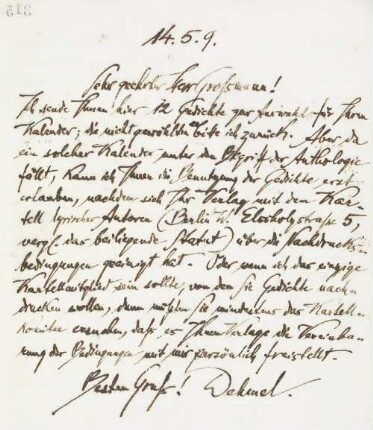 315
14.5.9.
Sehr geehrter Herr Grossmann!
Ich sende Ihnen hier 12 Gedichte zur Auswahl für Ihren
Kalender; die nicht gewählten bitte ich zurück. Aber da
ein solcher Kalender unter den Begriff der Anthologie
fällt, kann ich Ihnen die Benutzung der Gedichte erst
erlauben, nachdem sich Ihr Verlag mit dem Kar-
tell lyrischer Autoren (Berlin W. Elssholzstrasse 5,
vergl. das beiliegende Statut) über die Nachdrucks-
bedingungen geeinigt hat. Oder wenn ich das einzige
Kartellmitglied sein sollte, von dem sie Gedichte nach-
drucken wollen, dann müssten Sie mindestens das Kartell-
Komitee ersuchen, dass es Ihrem Verlage die Vereinba-
rung der Bedingungen mit mir persönlich freistellt.
Besten Gruss! Dehmel.